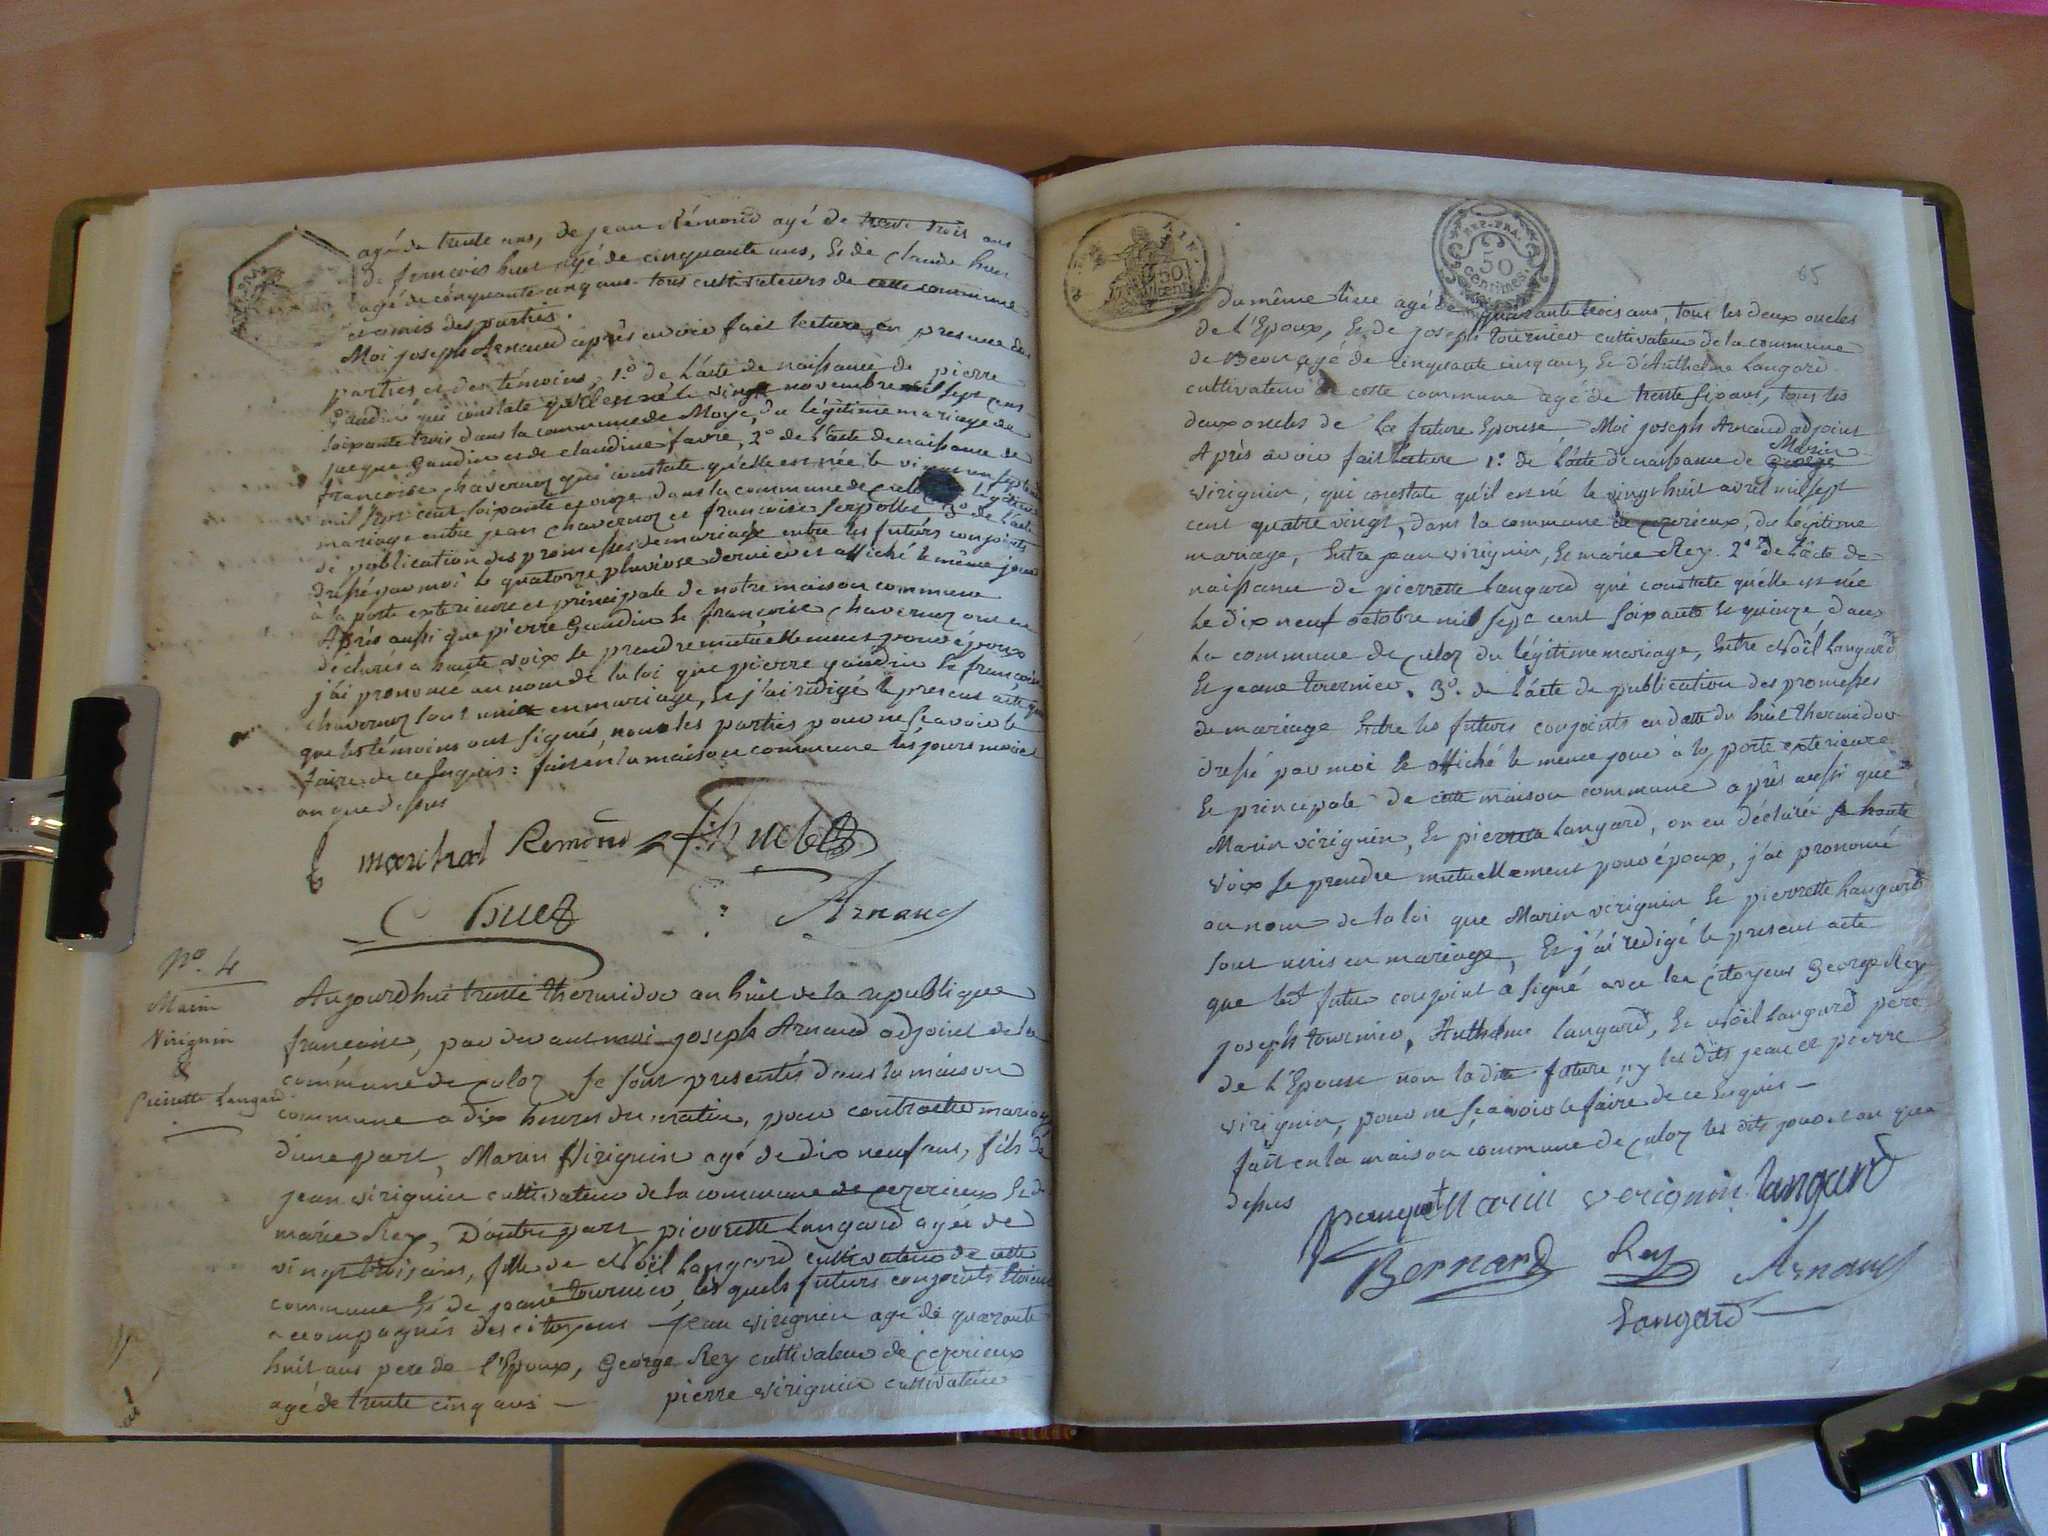 agé de trente ans, de jean Rémond agé de trente trois ans
de françois huet agé de cinquante ans, Et de claude huet
agé de cinquante cinq ans tous cultivateurs de cette commune
et amis des parties.
Moi joseph Arnaud après avoir fait lecture en presence des
parties et des témoins, 1.º de l'acte de naissance de pierre
Gaudin qui constate qu'il est né le vingt novembre mil sept cent
soixante trois dans la commune de Moye, du légitime mariage de
jacque Gaudin et de claudine favre, 2º de l'acte de naissance de
françoise chavernoz qui constate qu'elle est née le vingt un septembre
mil sept cent soixante et onze dans la commune de culoz légitime
mariage entre jean chavernoz et françoise Serpollet 3º de l'acte
de publication des promesses de mariage entre les futurs conjoints
dressé par moi le quatorze pluviose dernier et affiché le même jour
à la porte exterieure et principale de notre maison commune
Après aussi que pierre Gaudin Et françoise chavernoz ont eu
déclarés a haute voix se prendre mutuellement pour époux
j'ai prononcé au nom de la loi que pierre gaudin Et françoise
chavernoz sont unis en mariage, Et j'ai rédigé le present acte
que les témoins ont signés, non les parties pour ne sçavoir le
faire de ce enquis: fait en la maison commune les jours mois et
an que dessus
marchal Remond f: huet
C huet Arnaud
Nº. 4
Marin
Virignin
&
Pierrette Langard
Aujourdhui trente thermidor an huit de la republique
françoise, par devant moi joseph Arnaud adjoint de la
commune de culoz se sont presentés dans la maison
commune a dix heures du matin, pour contracter mariage
d'une part, Marin Virignin agé de dix neuf ans, fils de
jean virignin cultivateur de la commune de ceyzerieux Et de
marie Rey, D'autre part, pierrette Langard agée de
vingt trois ans, fille de Noël Langard cultivateur de cette
commune Et de jeanne tournier, les quels futurs conjoints étoient
accompagnés des citoyens jean virignin agé de quarante
huit ans pere de l'Epoux, George Rey cultivateur de ceyzerieux
agé de trente cinq ans — pierre virignin cultivateur
65
REP. FRA.
50
centimes.
du même lieu agé de quarante trois ans, tous les deux oncles
de l'Epoux, Et de joseph tournier cultivateur de la commune
de Beon agé de cinquante cinq ans, Et d'Anthelme Langard
cultivateur de cette commune agé de trente six ans, tous les
deux oncles de la future Epouse Moi joseph Arnaud adjoint
Après avoir fait lecture 1.º de l'acte de naissance de George Marin
virignin, qui constate qu'il est né le vingt huit avril mil sept
cent quatre vingt, dans la commune de ceyzerieux, du légitime
mariage, Entre jean virignin, Et marie Rey. 2º de l'acte de
naissance de pierrette Langard qui constate qu'elle est née
le dix neuf octobre mil sept cent soixante Et quinze, dans
la commune de culoz du légitime mariage, Entre Noël Langard
Et jeanne tournier, 3º. de l'acte de publication des promesses
de mariage Entre les futurs conjoints en datte du huit thermidor
dressé par moi Et affiché le même jour à la porte exterieure
Et principale de cette maison commune après aussi que
Marin virignin, Et pierrette Langard, on eu déclaréé a haute
voix se prendre mutuellement pour époux, j'ai prononcé
au nom de la loi que Marin virignin Et pierrette Langard
sont unis en mariage, Et j'ai redigé le present acte
que le futur conjoint a signé avec les citoyens George Rey
joseph tournier, Anthelme langard, Et Noël Langard pere
de l'Epouse non la dite future ny les dits jean et pierre
virignin, pour ne sçavoir le faire de ce enquis —
fait en la maison commune de culoz les dits jour et an que
dessus
Marin verignin langard
Bernard Rey Arnaud
Langard